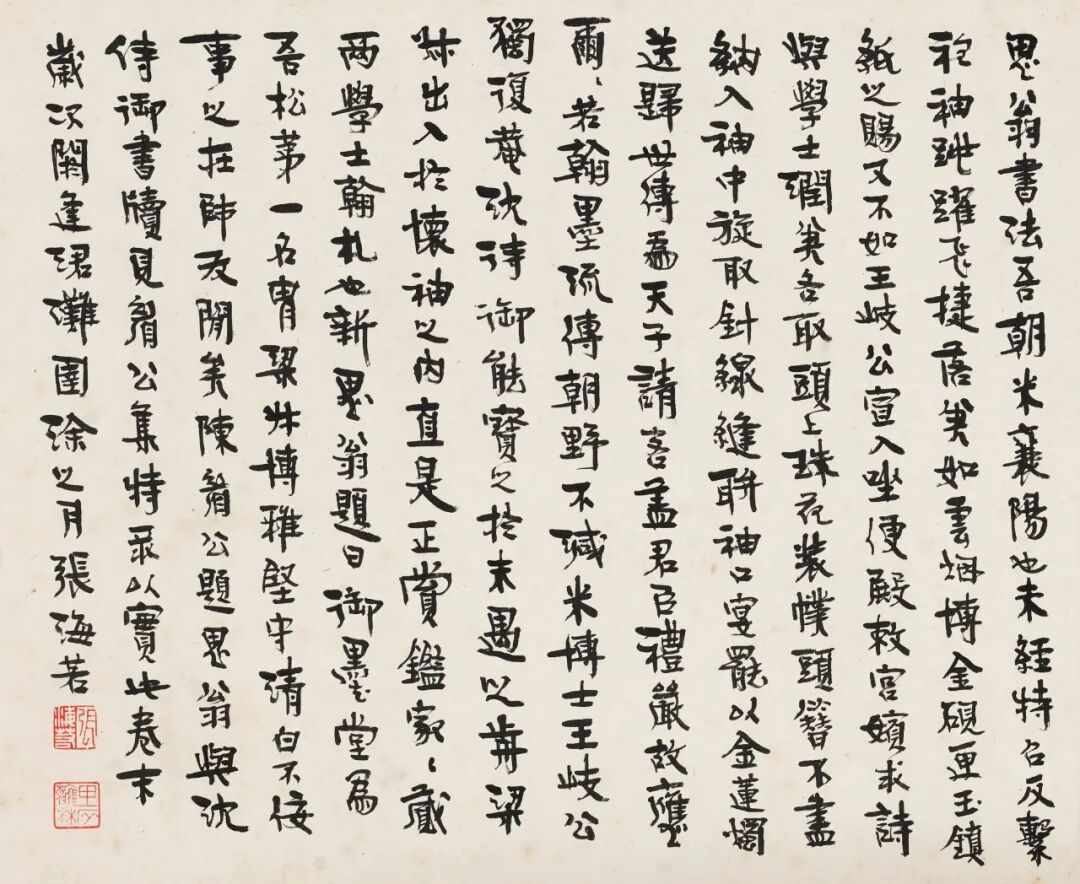 思翁書法吾朝米襄陽也未經特召反繫
袍袖跳躍飞捷落笔如雲烟博金硯匣玉鎮
紙之賜又不如王岐公宣入坐便殿敕宮嬪求詩
與學士潤笔各取頭上珠花装幞頭簪不盡
納入袖中旋取針線縫聯袖口宴罷以金蓮燭
送歸世傳為天子請客盖君臣禮嚴故應
爾〻若翰墨流傳朝野不減米博士王岐公
獨復菴沈待御能寶之於未遇以畀梁
叔出入於懷袖之內直是正賞鑑家〻藏
两學士翰札也新思翁題曰御墨堂為
吾松第一名胄梁叔博雅堅守清白不佞
事之在師友間矣陳眉公題思翁與沈
侍御書牘見眉公集特录以實此卷末
歲次閼逢涒灘圉涂之月張海若
甲辰翰林